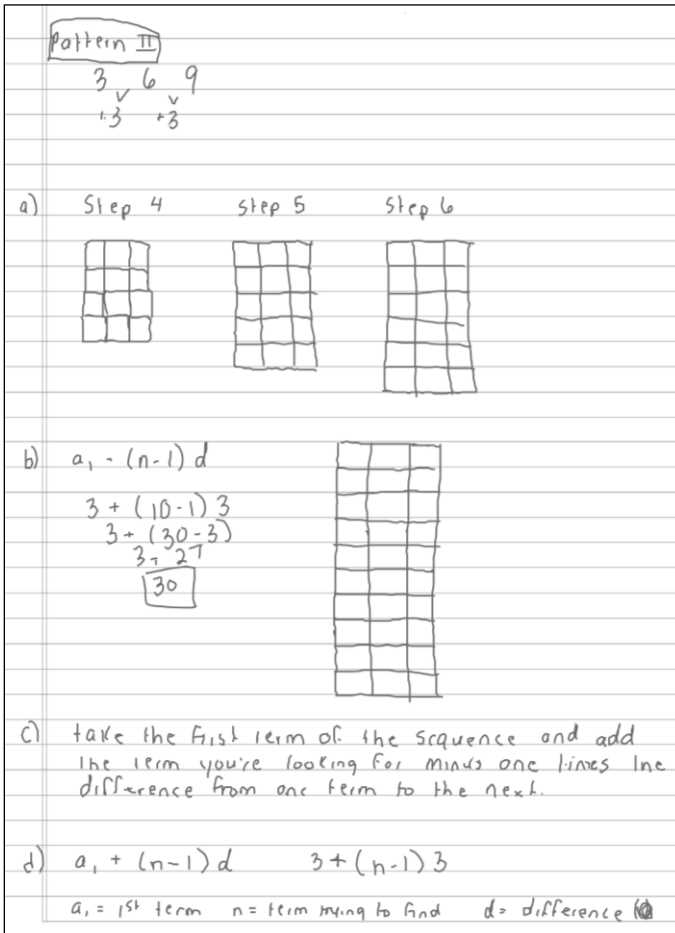 Pattern II
3 6 9
+3 +3
a) Step 4 Step 5 Step 6
b) a₁ - (n-1) d
3 + (10-1) 3
3 + (30-3)
3+ 27
30
c) take the first term of the sequence and add
the term you're looking for minus one times the
difference from one term to the next.
d) a₁ + (n-1) d 3+(n-1) 3
a₁ = 1st term n = term trying to find d= difference